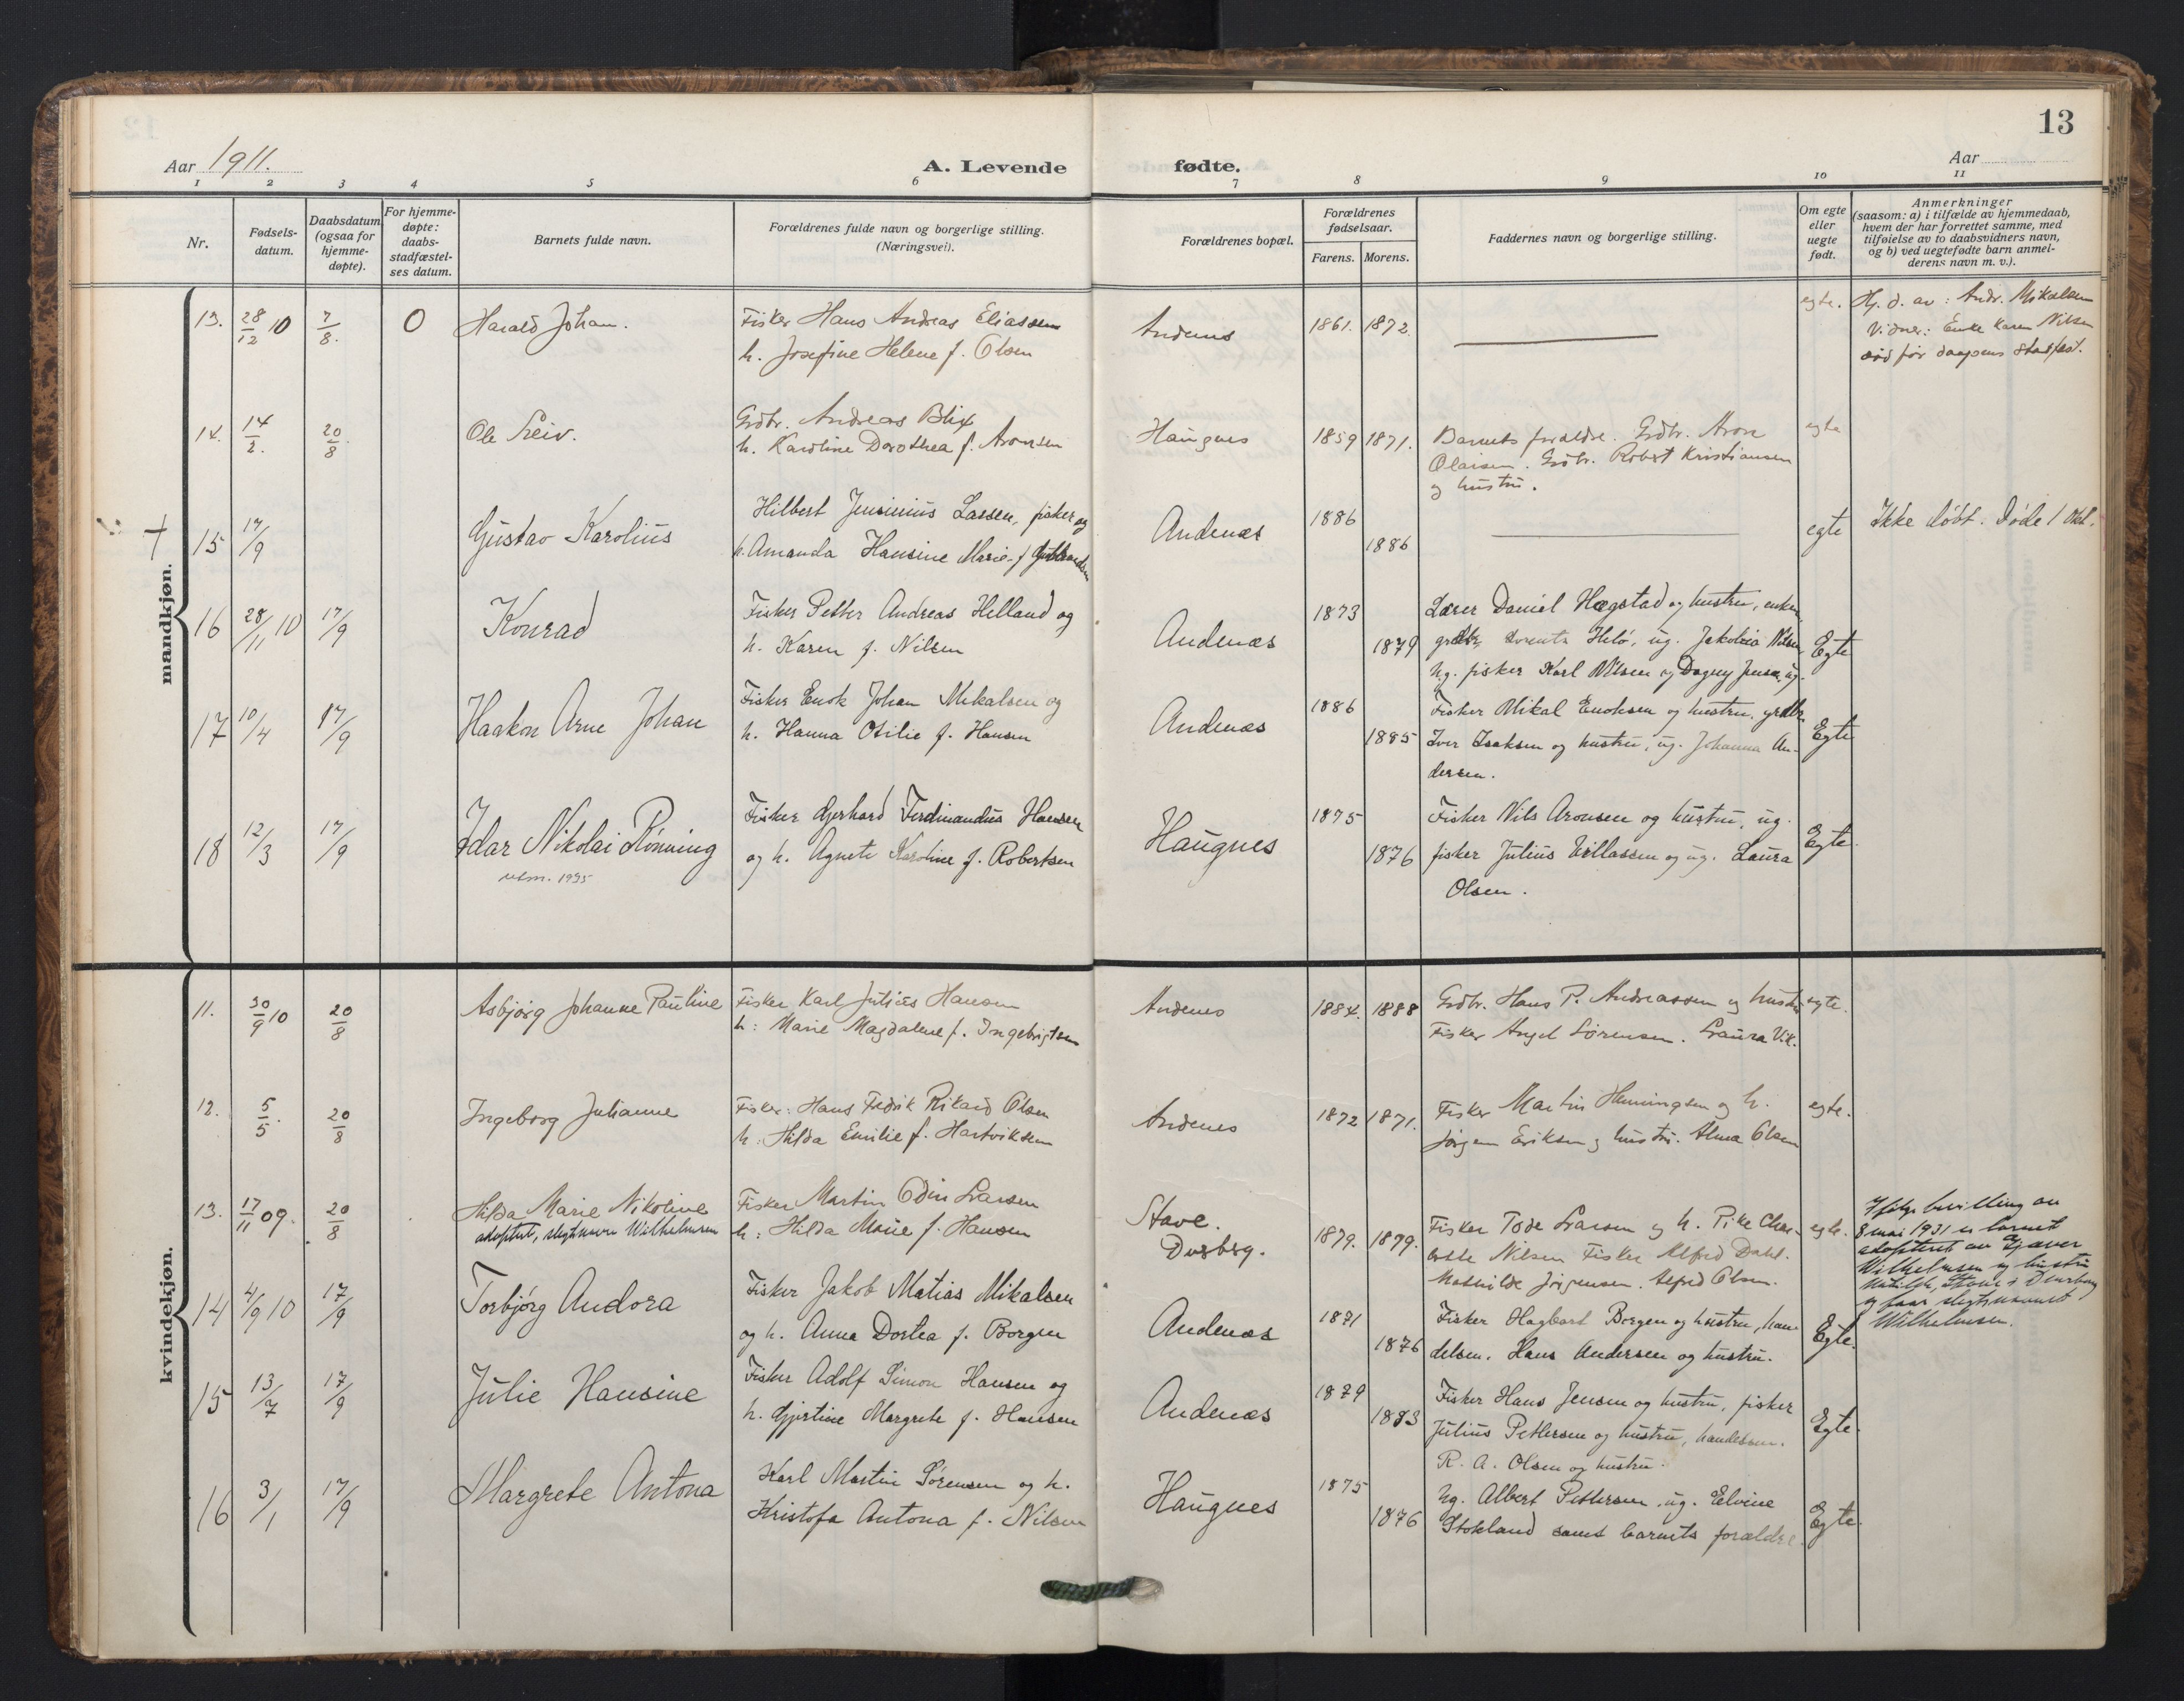 13
Aar 1911.
A. Levende fødte.
Aar
1 2 3 4 5 6 7 8 9 10 11
Nr.
Fødsels-
datum.
Daabsdatum
(ogsaa for
hjemme-
døpte).
For hjemme-
døpte:
daabs-
stadfæstel-
ses datum.
Barnets fulde navn.
Forældrenes fulde navn og borgerlige stilling.
(Næringsvei).
Forældrenes bopæl.
Forældrenes
fødselsaar.
Farens. Morens.
Faddernes navn og borgerlige stilling.
Om egte
eller
uegte
født.
Anmerkninger
(saasom: a) i tilfælde av hjemmedaab,
hvem der har forrettet samme, med
tilføielse av to daabsvidners navn,
og b) ved uegtefødte barn anmel-
derens navn m. v.).
mandkjøn.
13. 28/12 10 7/8. O Harald Johan.
Fisker Hans Andreas Eliassen
h. Josefine Helene f. Olsen
Andenes 1861. 1872. egte.
Hj. d. av: Andr. Mikalsen
Vidner: Enke Karen Nilsen
død før daapens stadfæst.
14. 14/2. 20/8. Ole Leiv.
Grdbr. Andreas Blix
h. Karoline Dorothea f. Aronsen
Haugnes 1859 1871.
Barnets forældre. Grdbr. Aron
Olaisen. Grdbr. Robert Kristiansen
og hustru.
egte
† 15 17/9 Gustav Karolius
Hilbert Jensinius Larsen, fisker og
h. Amanda Hansine Marie f.
Andenæs 1886 1886 egte
Ikke døbt. Døde 1 Okt.
16 28/11 10 17/9 Konrad
Fisker Petter Andreas Helland og
h. Karen f. Nilsen
Andenæs 1873 1879
Lærer Daniel Hægstad og hustru, enkem
grdbr. Lorentz Helø, ug. Jakobia Nilsen,
Ug. fisker Karl Nilsen og Dagny Jensen, ug.
Egte
17 10/4 17/9 Haakon Arne Johan
Fisker Enok Johan Mikalsen og
h. Hanna Otilie f. Hansen
Andenæs 1886 1885
Fisker Mikal Enoksen og hustru, grdbr.
Iver Isaksen og hustru, ug. Johanna An-
dersen.
Egte
18 12/3 17/9 Idar Nikolai Rønning
utsm. 1935
Fisker Gjerhard Ferdinandius Hansen
og h. Agnete Karoline f. Robertsen
Haugnes 1875 1876
Fisker Nils Aronsen og hustru, ug.
fisker Julius Villassen og ug. Laura
Olsen.
Egte.
kvindekjøn.
11. 30/9 10 20/8 Asbjørg Johanne Pauline
Fisker Karl Julius Hansen
h: Marie Magdalene f. Ingebrigtsen
Andenes 1884. 1888
Grdbr. Hans P. Andreassen og hustru
Fisker Angel Sørensen. Laura Vik.
egte.
12. 5/5. 20/8 Ingeborg Julianne
Fisker: Hans Fedrik Rikard Olsen
h: Hilda Emilie f. Hartviksen
Andenes 1872 1871.
Fisker Martin Henningsen og h.
Jørgen Eriksen og hustru. Alma Olsen
egte.
13. 17/11 09. 20/8 Hilda Marie Nikoline
adoptert, slegtnavn Wilhelmsen
Fisker Martin Odin Larsen
h: Hilda Marie f. Hansen
Stave.
Dverberg.
1879. 1879.
Fisker Tode Larsen og h. Pike Char-
lotte Nilsen Fisker Alfred Dahl.
Mathilde Jørgensen. Alfred Olsen.
egte.
Ifølge bevilling av
8 mai 1931 er barnet
adopteret av Gjæver
Wilhelmsen og hustru
Matilde, Stave i Dverberg
og faar slegtsnavnet
Wilhelmsen.
14 4/9 10 17/9 Torbjørg Andora
Fisker Jakob Matias Mikalsen
og h. Anna Dortea f. Borgen
Andenæs 1871 1876
Fisker Hagbart Borgen og hustru, han-
delsm. Hans Andersen og hustru.
Egte.
15 13/7 17/9 Julie Hansine
Fisker Adolf Simon Hansen og
h. Gjertine Margrete f. Hansen
Andenæs 1879 1883
Fisker Hans Jensen og hustru, fisker
Julius Pettersen og hustru, handelsm.
R. A. Olsen og hustru.
Egte.
16 3/1 17/9 Margrete Antona
Karl Martin Sørensen og h.
Kristofa Antona f. Nilsen
Haugnes 1875 1876
Ug. Albert Pettersen, ug. Elvine
Stokland samt barnets forældre.
Egte.